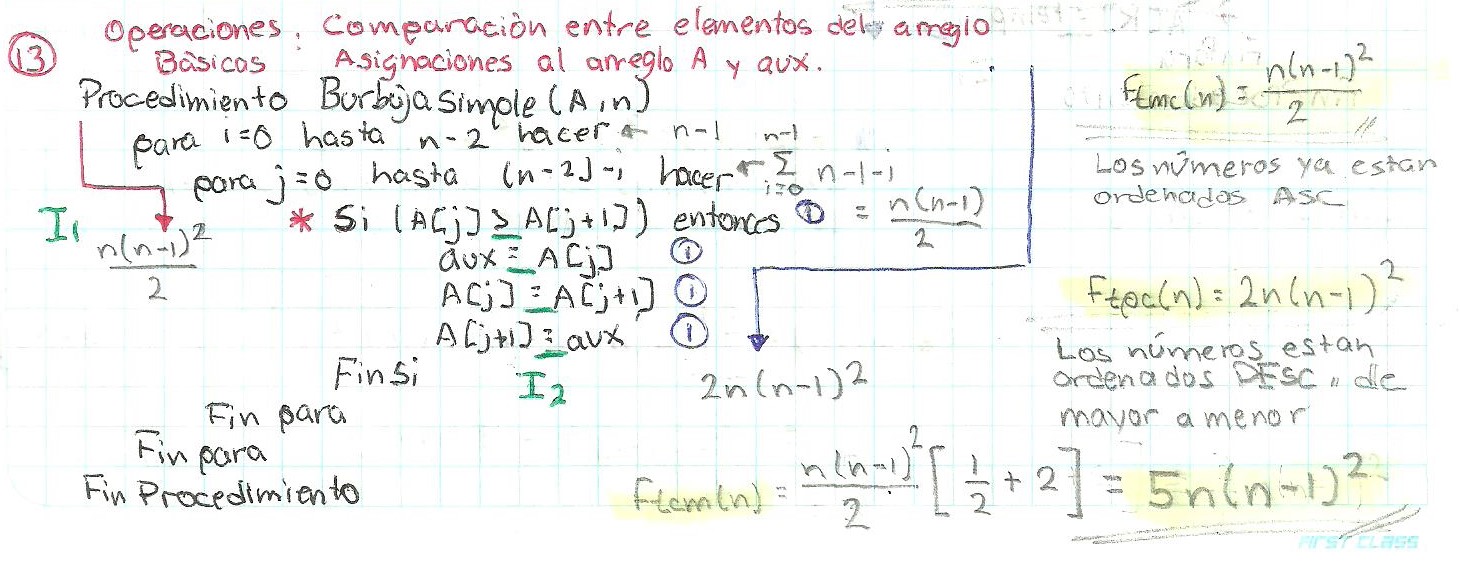 13
Operaciones: Comparación entre elementos del arreglo
Básicas Asignaciones al arreglo A y aux.
Procedimiento BurbujaSimple(A,n)
para i=0 hasta n-2 hacer ← n-1
para j=0 hasta (n-2)-i hacer ← n-1 Σ i=0 n-1-i
* Si (A[j] > A[j+1]) entonces ① = n(n-1)/2
aux = A[j] ①
A[j] = A[j+1] ①
A[j+1] = aux ①
Fin Si
Fin para
Fin para
Fin Procedimiento
I₁
n(n-1)²/2
I₂
2n(n-1)²
Ftmc(n) = n(n-1)²/2
Los números ya estan
ordenados ASC
Ftpc(n) = 2n(n-1)²
Los números estan
ordenados DESC, de
mayor a menor
Ftcm(n) = n(n-1)²/2 [1/2 + 2] = 5n(n-1)²
FIRST CLASS